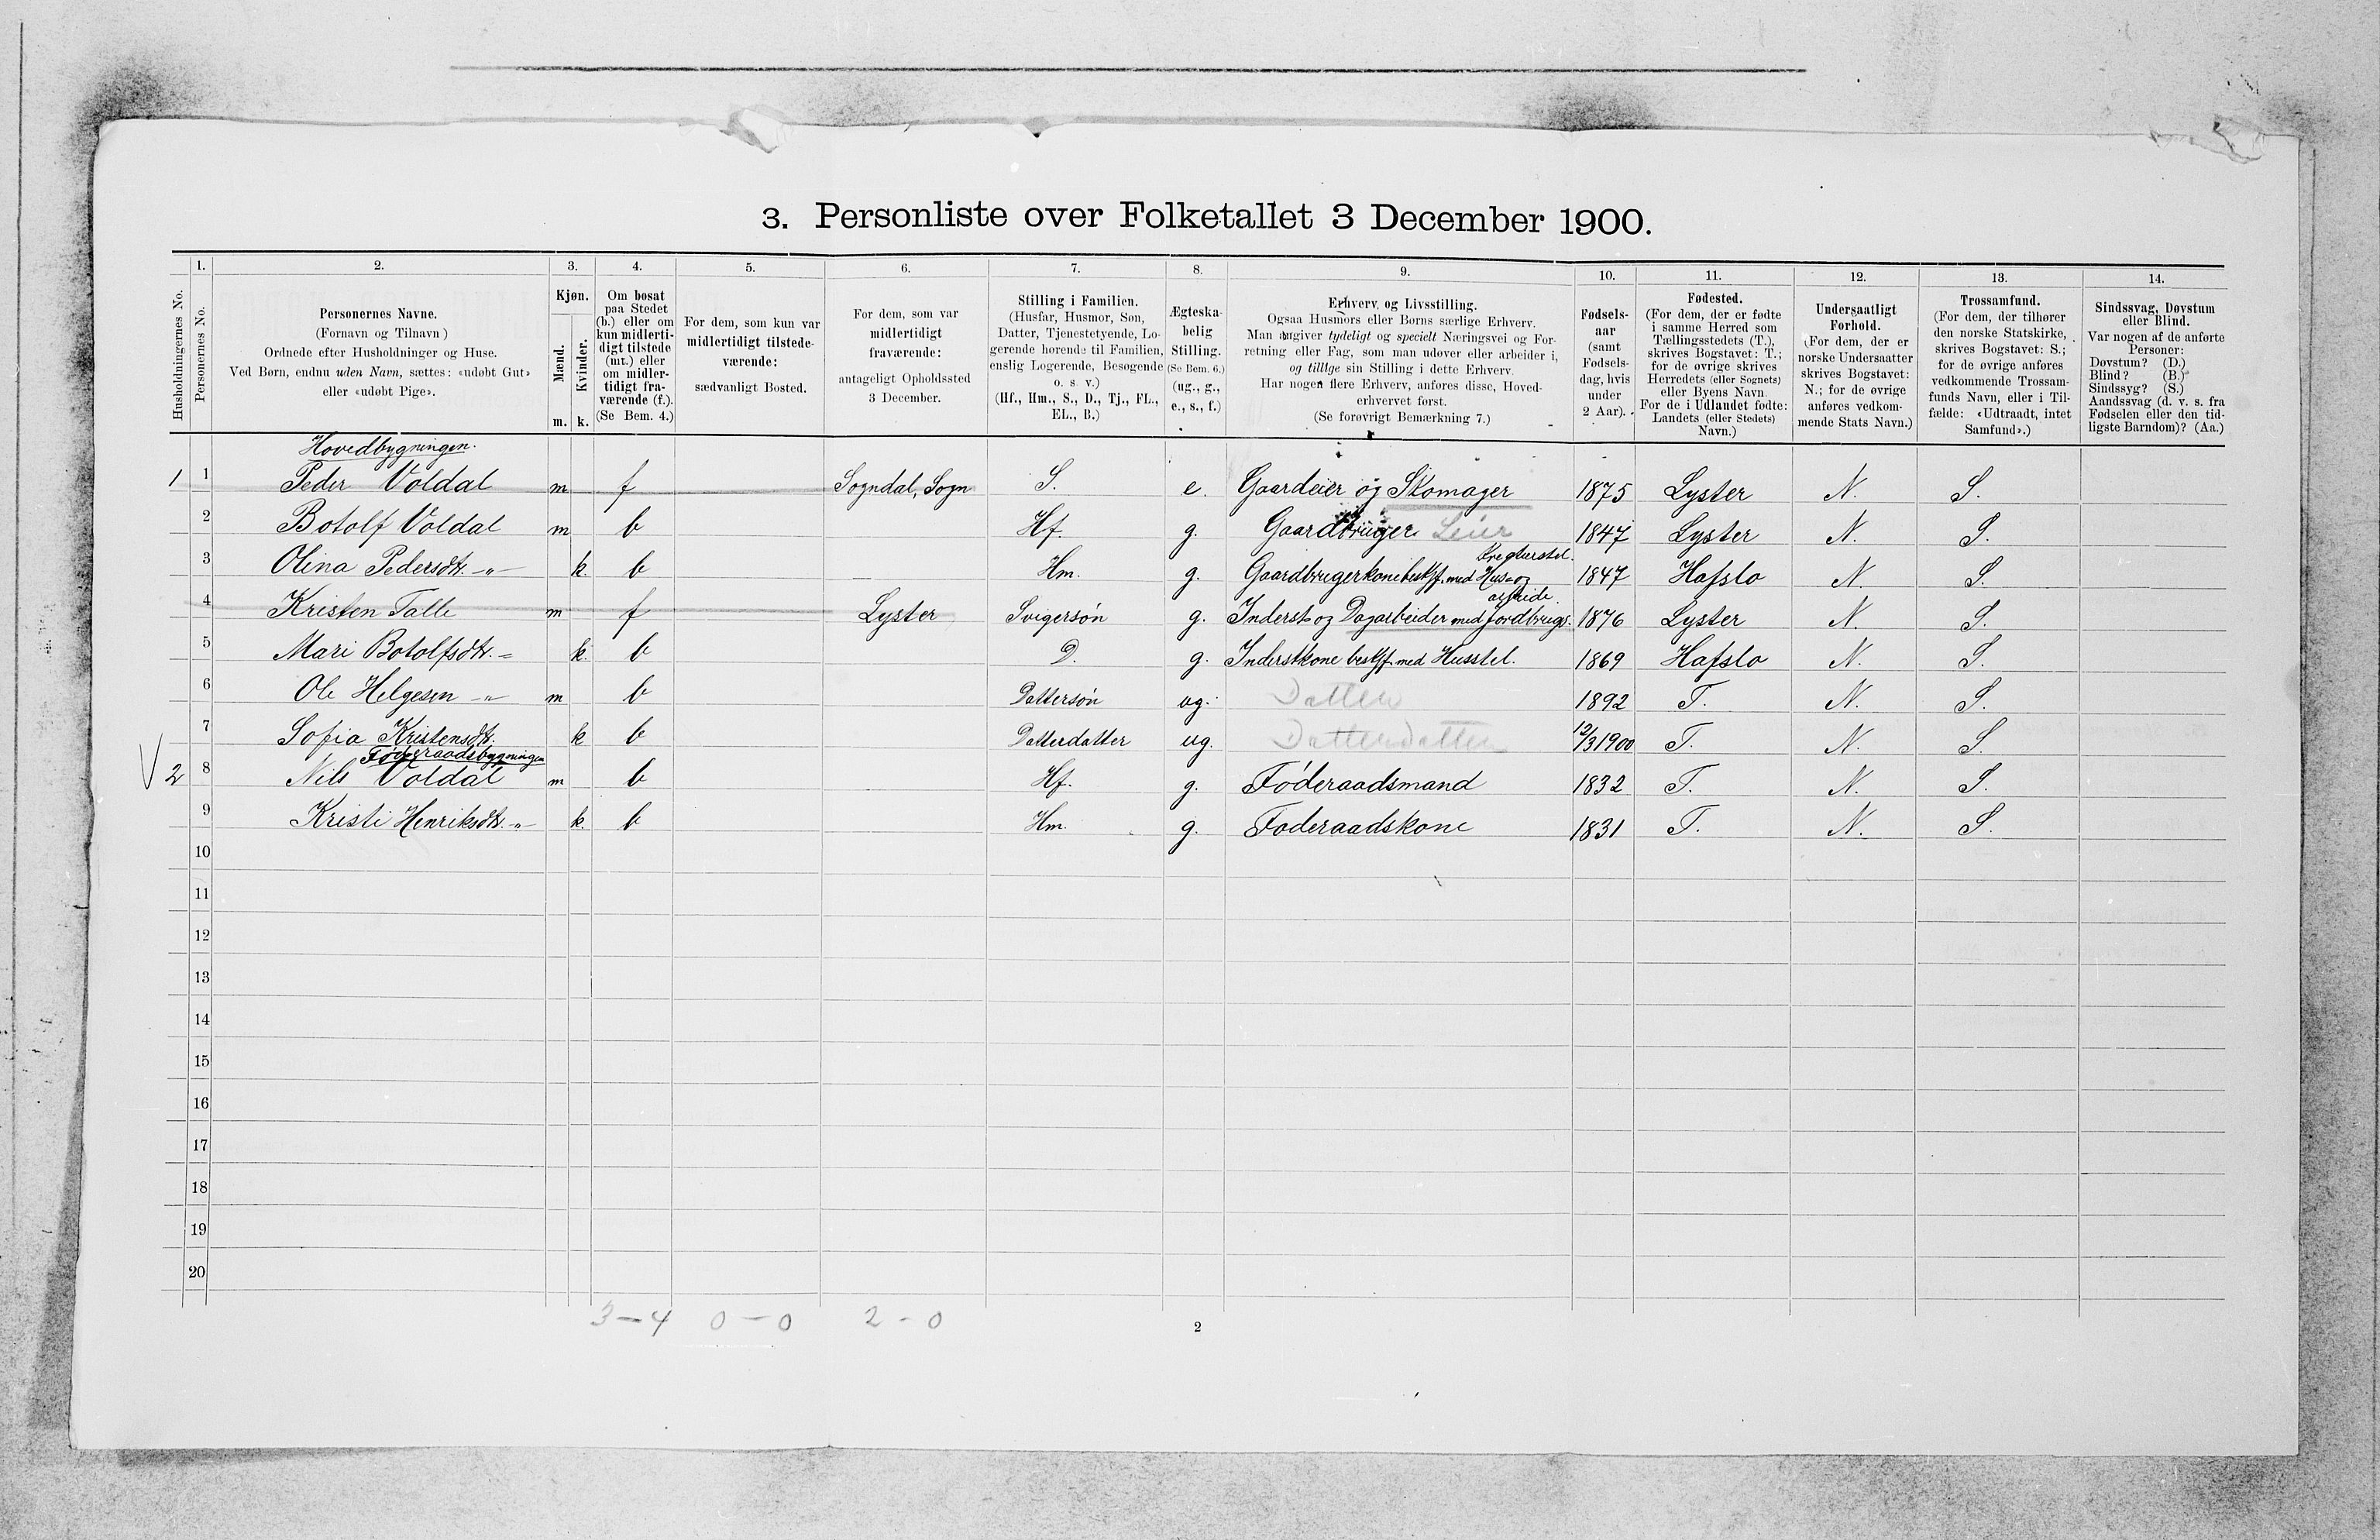 3. Personliste over Folketallet 3 December 1900.
1. 2. 3. 4. 5. 6. 7. 8. 9. 10. 11. 12. 13. 14.
Husholdningernes No.
Personernes No.
Personernes Navne.
(Fornavn og Tilnavn)
Ordnede efter Husholdninger og Huse.
Ved Børn, endnu uden Navn, sættes: «udøbt Gut»
eller «udøbt Pige».
Kjøn.
Mænd.
Kvinder.
m. k.
Om bosat
paa Stedet
(b.) eller om
kun midlerti-
digt tilstede
(mt.) eller
om midler-
tidigt fra-
værende (f.).
(Se Bem. 4.)
For dem, som kun var
midlertidigt tilstede-
værende:
sædvanligt Bosted.
For dem, som var
midlertidigt
fraværende:
antageligt Opholdssted
3 December.
Stilling i Familien.
(Husfar, Husmor, Søn,
Datter, Tjenestetyende, Lo-
gerende hørende til Familien,
enslig Logerende, Besøgende
o. s. v.)
(Hf., Hm., S., D., Tj., FL.,
EL., B.)
Ægteska-
belig
Stilling.
(Se Bem. 6.)
(ug., g.,
e., s., f.)
Erhverv og Livsstilling.
Ogsaa Husmors eller Børns særlige Erhverv.
Man angiver tydeligt og specielt Næringsvei og For-
retning eller Fag, som man udøver eller arbeider i,
og tillige sin Stilling i dette Erhverv.
Har nogen flere Erhverv, anføres disse, Hoved-
erhvervet først.
(Se forøvrigt Bemærkning 7.)
Fødsels-
aar
(samt
Fødsels-
dag, hvis
under
2 Aar).
Fødested.
(For dem, der er fødte
i samme Herred som
Tællingsstedets (T.),
skrives Bogstavet: T.;
for de øvrige skrives
Herredets (eller Sognets)
eller Byens Navn.
For de i Udlandet fødte:
Landets (eller Stedets)
Navn.)
Undersaatligt
Forhold.
(For dem, der er
norske Undersaatter
skrives Bogstavet:
N.; for de øvrige
anføres vedkom-
mende Stats Navn.)
Trossamfund.
(For dem, der tilhører
den norske Statskirke,
skrives Bogstavet: S.;
for de øvrige anføres
vedkommende Trossam-
funds Navn, eller i Til-
fælde: «Udtraadt, intet
Samfund».)
Sindssvag, Døvstum
eller Blind.
Var nogen af de anførte
Personer:
Døvstum? (D.)
Blind? (B.)
Sindssyg? (S.)
Aandssvag (d. v. s. fra
Fødselen eller den tid-
ligste Barndom)? (Aa.)
Hovedbygningen.
1 1 Peder Voldal m f Sogndal, Sogn S. e. Gaardeier og Skomager 1875 Lyster N. S.
2 Botolf Voldal m b Hf. g. Gaardbruger Leier 1847 Lyster N. S.
Kreaturstel.
3 Olina Pedersdtr. -"- k. b Hm. g. Gaardbrugerkone beskjf. med Hus- og 1847 Hafslo N. S.
arbeide.
4 Kristen Talle m f Lyster Svigersøn g. Inderst og Dagarbeider med Jordbrugs. 1876 Lyster N. S.
5 Mari Botolfsdtr. -"- k. b D. g. Inderstkone beskjf. med Husstel. 1869 Hafslo N. S.
6 Ole Helgesen -"- m b Dattersøn ug. Datter 1892 T. N. S.
7 Sofia Kristensdtr. k b Datterdatter ug. Datterdatter 12/3 1900 T. N. S.
Føderaadsbygningen
V 2 8 Nils Voldal m b Hf. g. Føderaadsmand 1832 T. N. S.
9 Kristi Henriksdtr. -"- k. b Hm. g. Føderaadskone 1831 T. N. S.
10
11
12
13
14
15
16
17
18
19
20
3-4 0-0 2-0
2